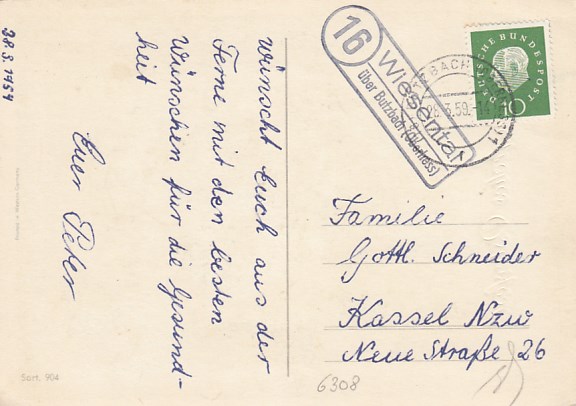 28.3.1959
wünscht Euch aus der
Ferne mit den besten
Wünschen für die Gesund-
heit
Euer Peter
Sort. 904
16
Wiesental
über Butzbach (Oberhess)
28.3.59.
DEUTSCHE BUNDESPOST
10
Familie
Gottl. Schneider
Kassel Nzw
Neue Straße 26
6308